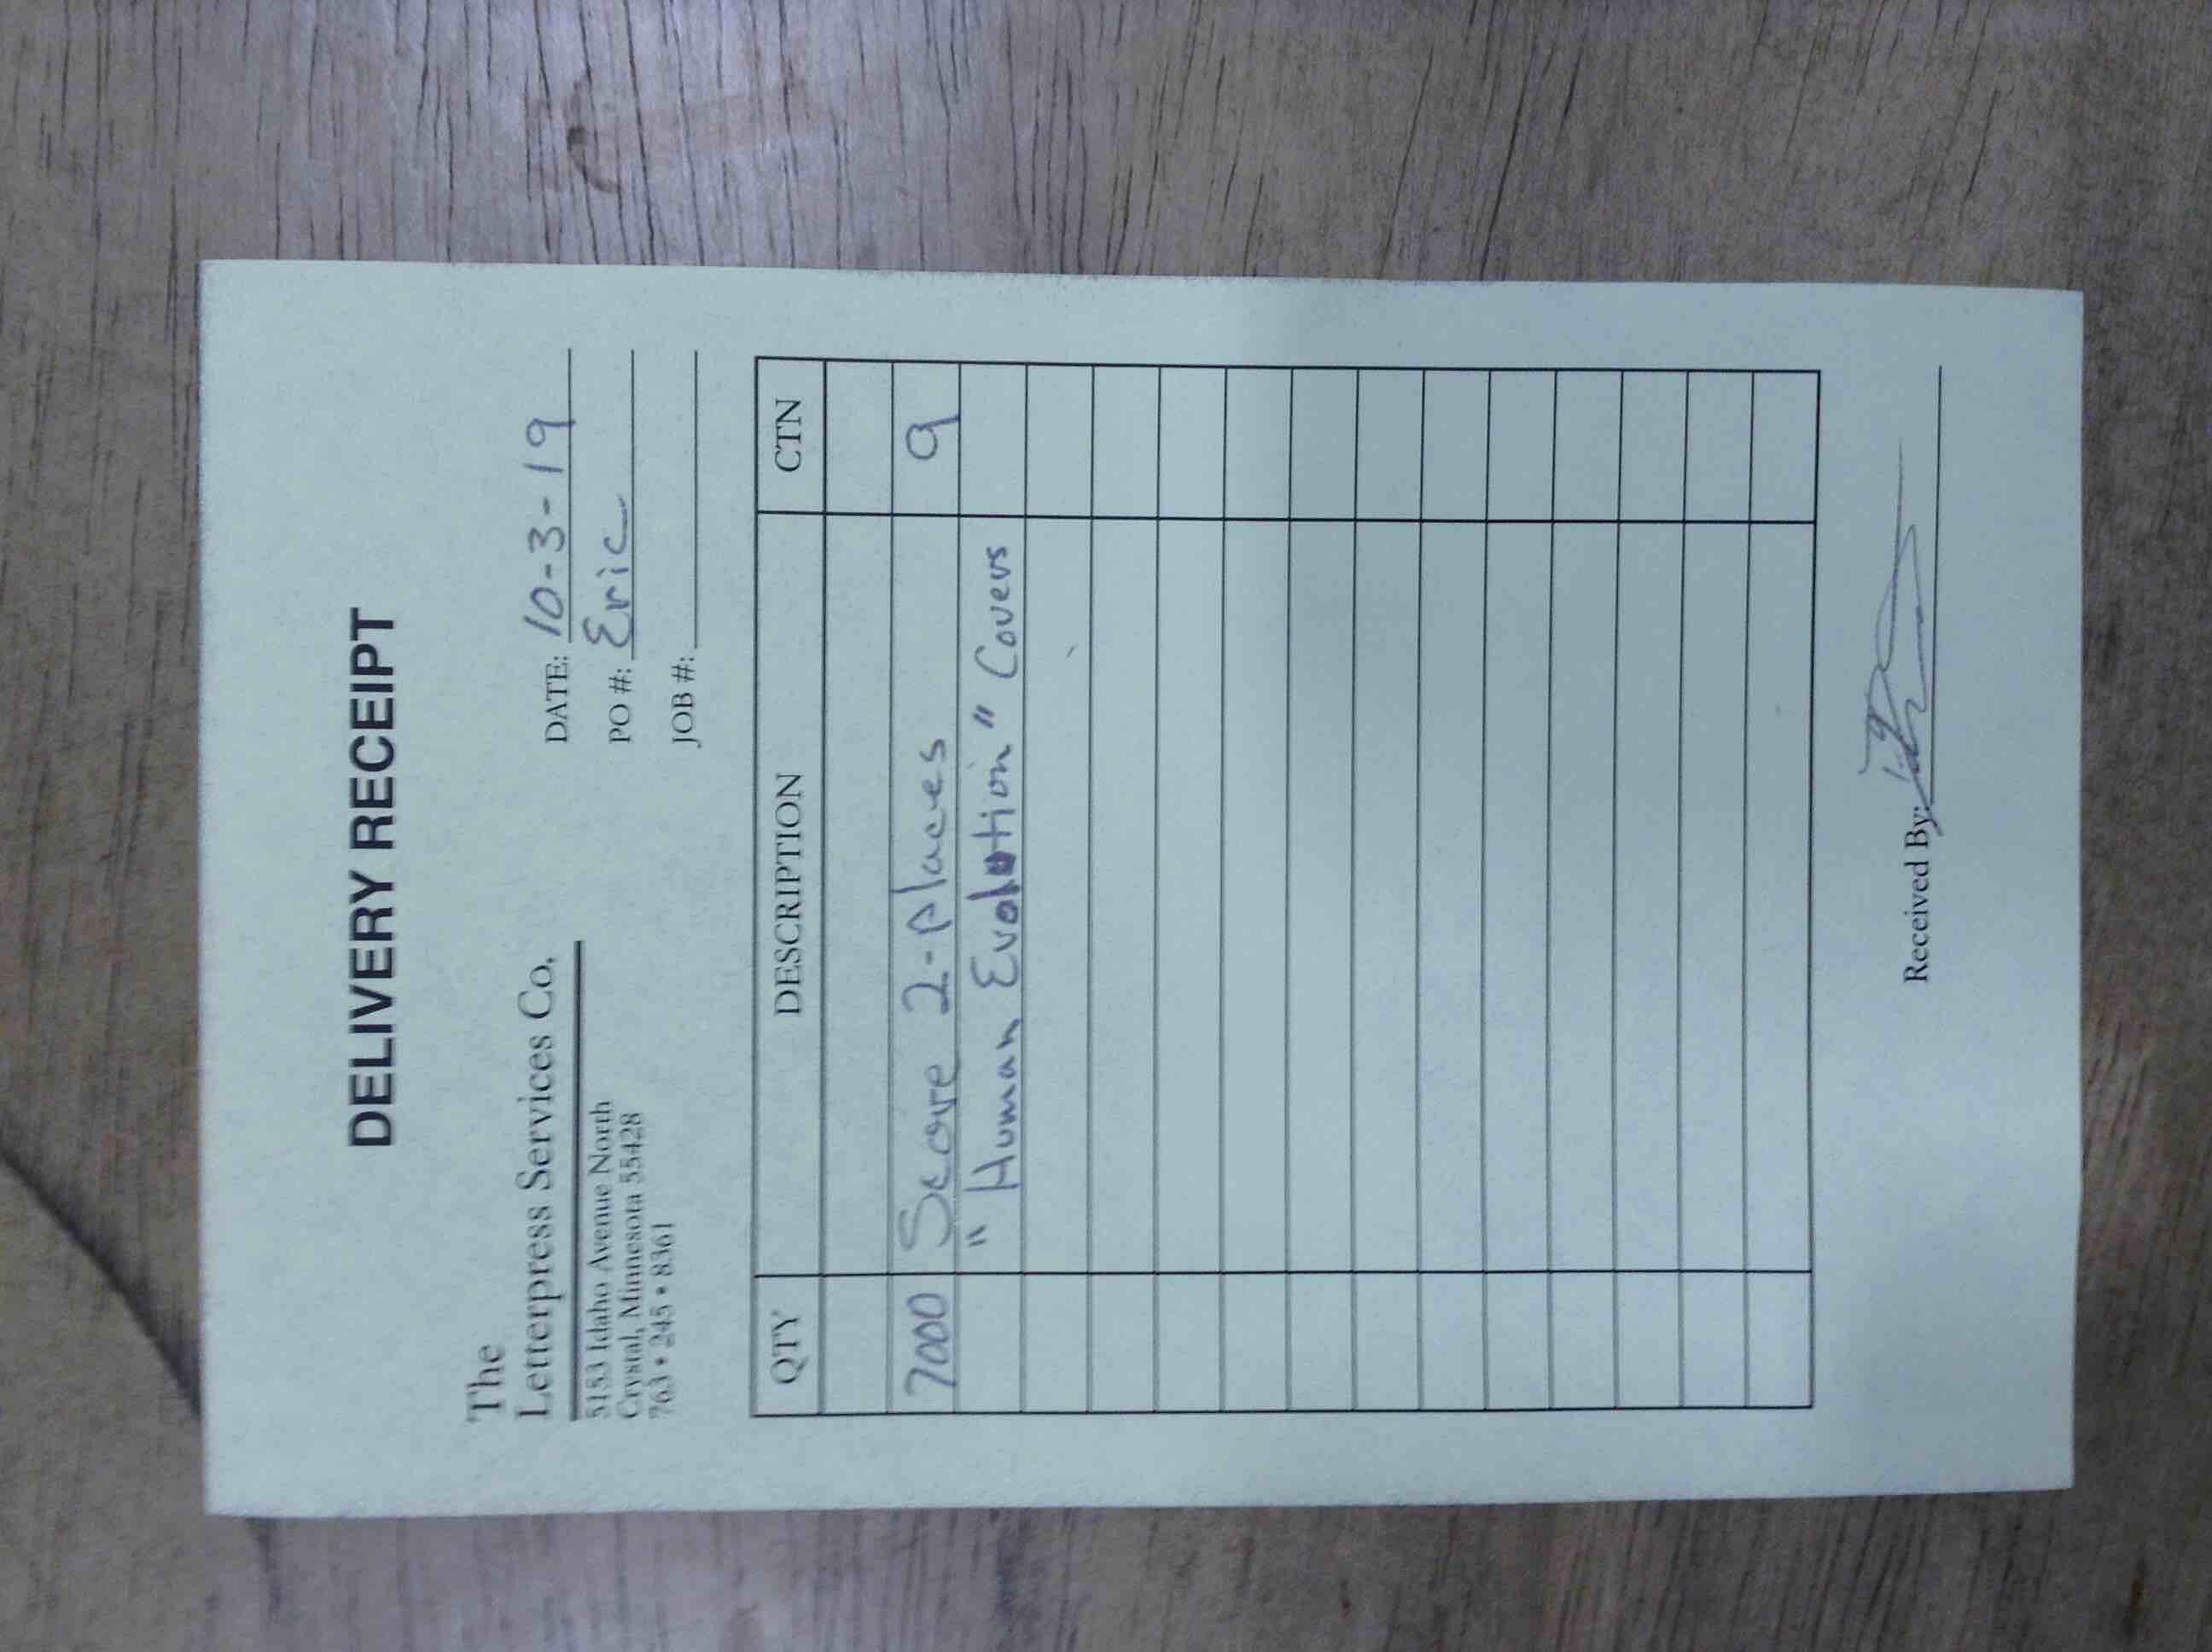 DELIVERY RECEIPT
The
Letterpress Services Co.
5153 Idaho Avenue North
Crystal, Minnesota 55428
763 • 245 • 8361
DATE: 10-3-19
PO #: Eric
JOB #:
QTY DESCRIPTION CTN
7000 Score 2-places 9
"Human Evolution" Covers
Received By: